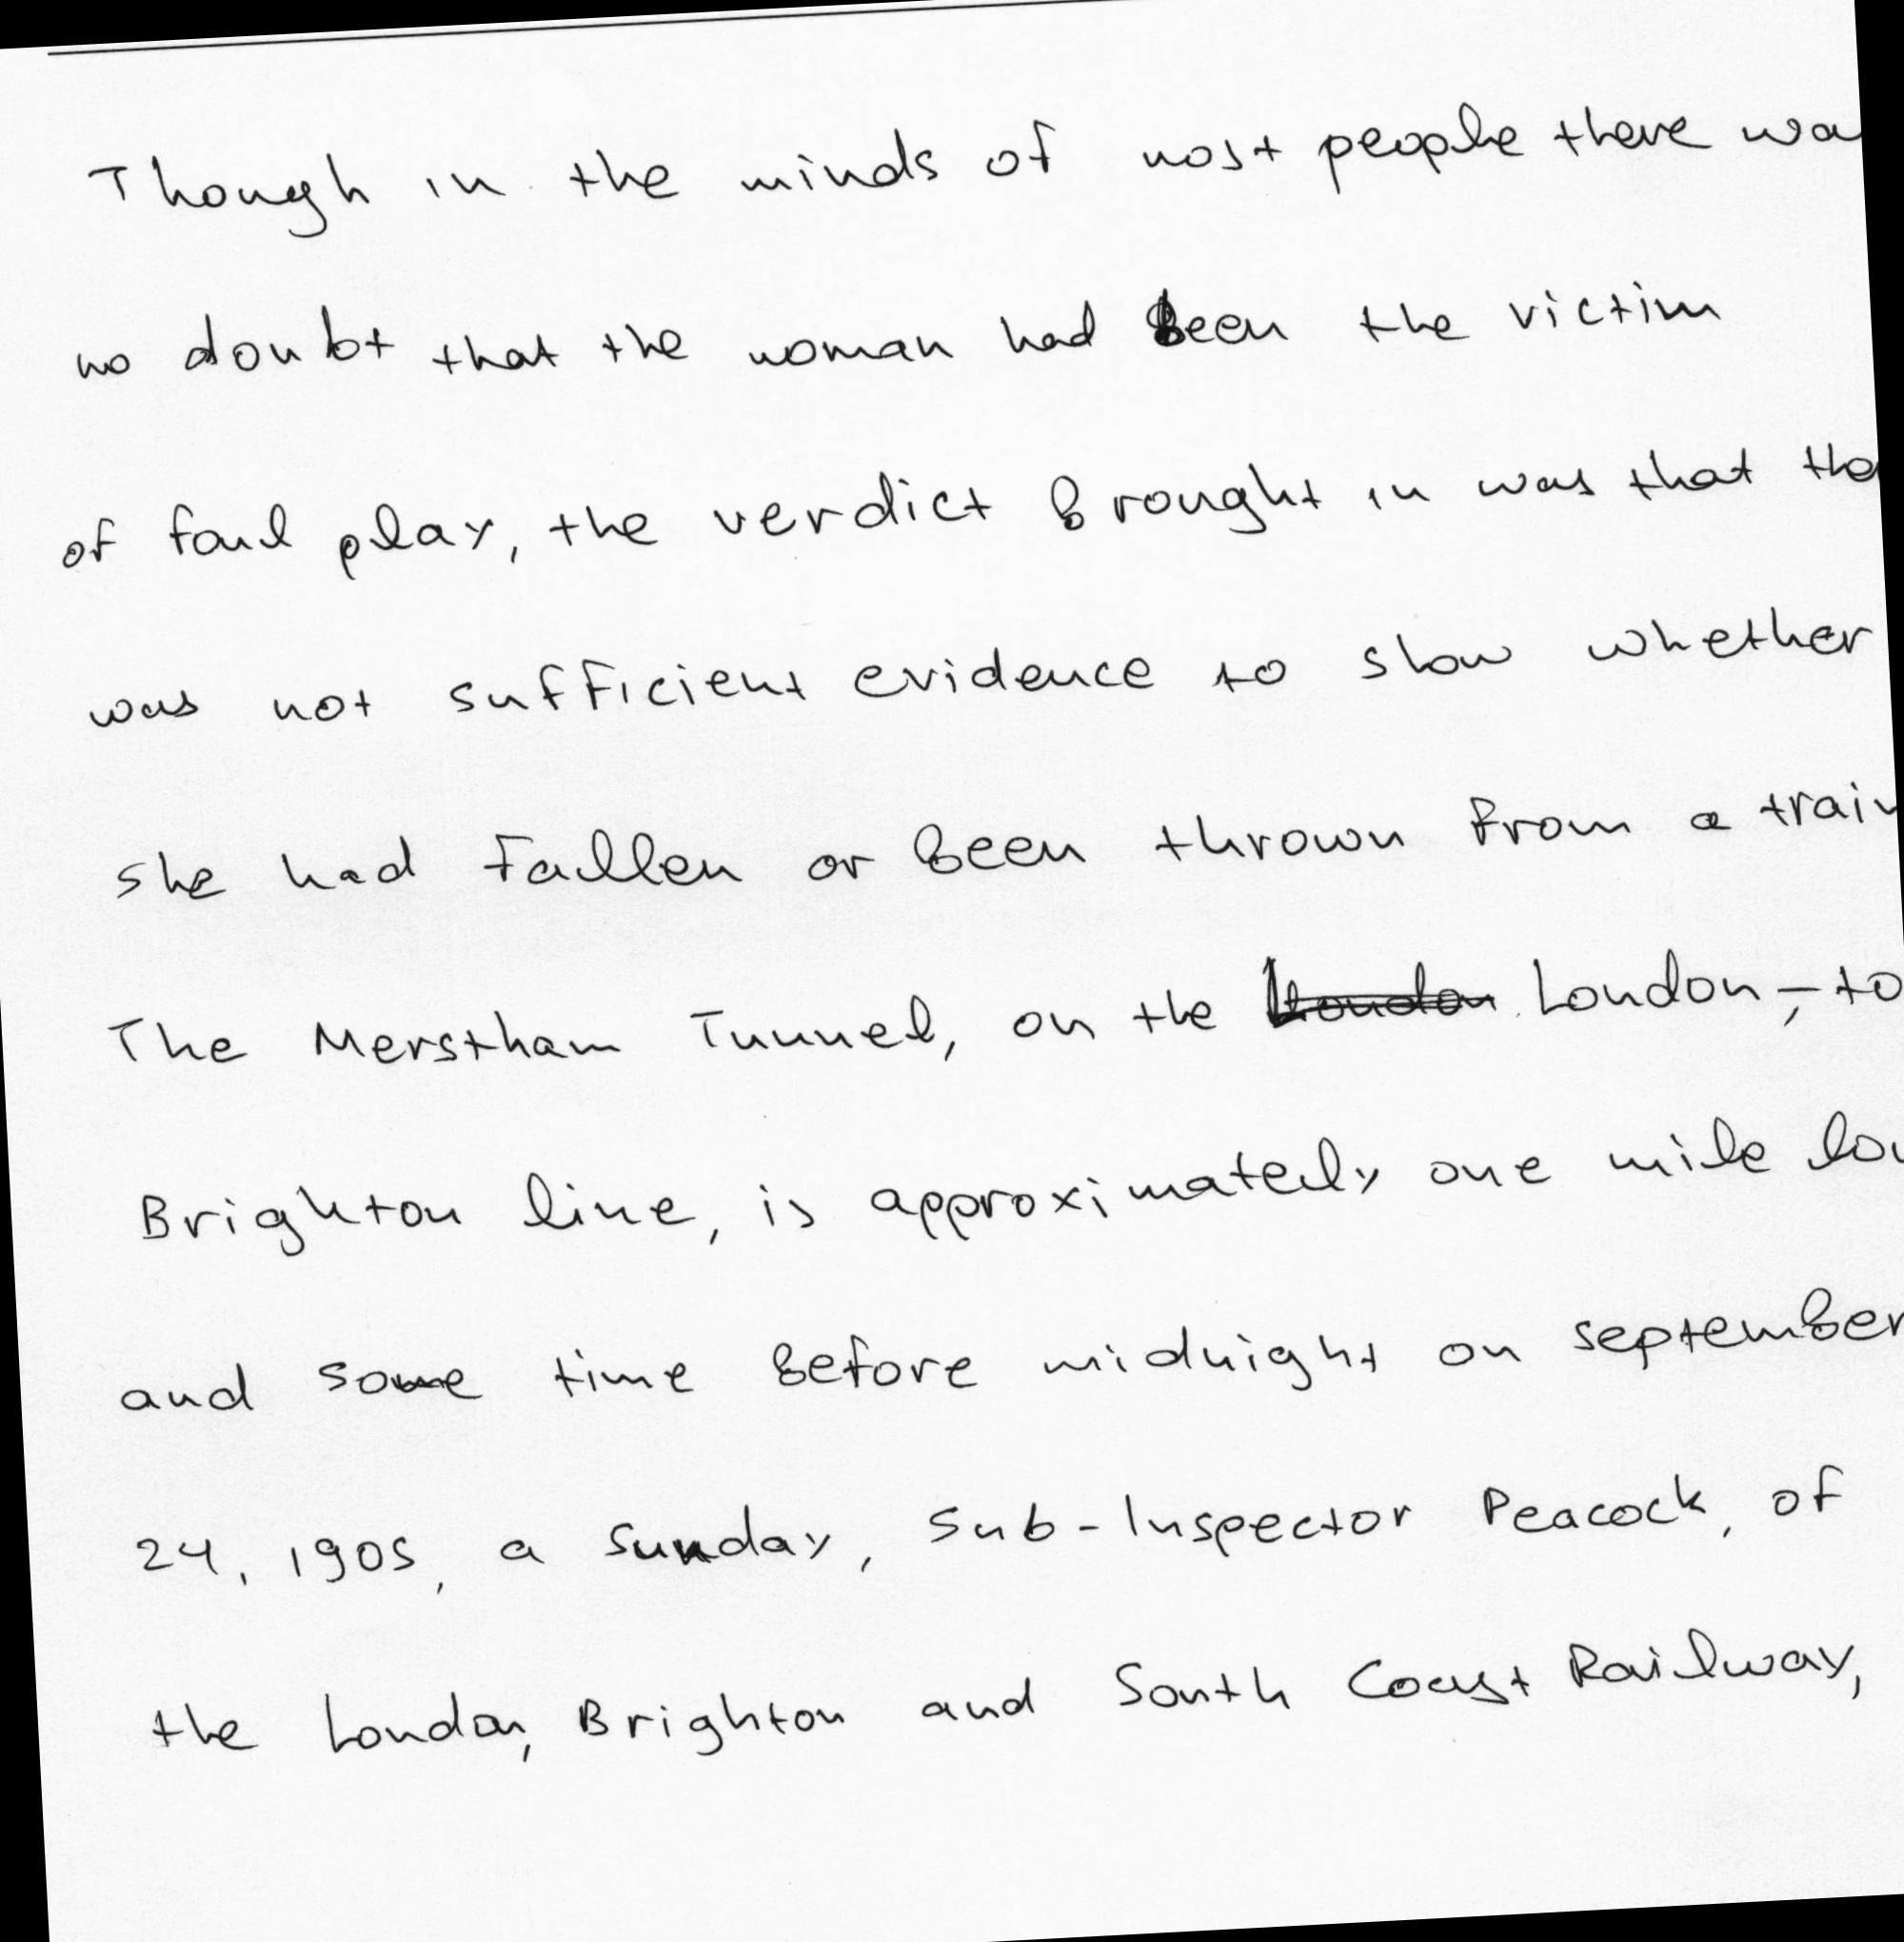 Though in the minds of most people there wa
no doubt that the woman had been the victim
of foul play, the verdict brought in was that the
was not sufficient evidence to show whether
she had fallen or been thrown from a train
The Merstham Tunnel, on the London London,-to
Brighton line, is approximately one mile lon
and some time before midnight on september
24, 1905, a Sunday, Sub-Inspector Peacock, of
the London, Brighton and South Coast Railway,